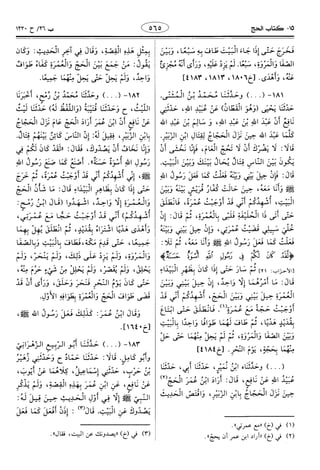 ١٥- كتاب الحج
٥٦٥
ب ٢٦/ ح ١٢٣٠
فخرج حتى إذا جاء البيت طاف به سبعا، وبين
الصفا والمروة، سبعا. لم يزد عليه، ورأى أنه مجزئ
عنه، وأهدى. [ع ١٨٠٦، ١٨١٣، ٤١٨٣]
١٨١- (...) وحدثنا محمد بن المثنى.
حدثنا يحيى (وهو القطان) عن عبيد الله، حدثني
نافع أن عبد الله بن عبد الله، و سالم بن عبد الله
كلما عبد الله حين نزل الحجاج لقتال ابن الزبير.
قالا: لا يضرك أن لا تحج العام، فإنا نخشى أن
يكون بين الناس قتال يحال بينك وبين البيت.
قال: فإن حيل بيني وبينه فعلت كما فعل رسول الله
ﷺ وأنا معه، حين حالت كفار قريش بينه وبين
البيت، أشهدكم أني قد أوجبت عمرة، فانطلق
حتى أتى ذا الحليفة فلبى بالعمرة، ثم قال: إن
خلي سبيلي قضيت عمرتي، وإن حيل بيني وبينه
فعلت كما فعل رسول الله ﷺ وأنا معه، ثم تلا:
﴿لقد كان لكم في رسول الله أسوة حسنة﴾
[الأحزاب: ٢١] ثم سار حتى إذا كان بظهر البيداء
قال: ما أمرهما إلا واحد، إن حيل بيني وبين
العمرة حيل بيني وبين الحج، أشهدكم أني قد
أوجبت حجة مع عمرة(١). فانطلق حتى ابتاع
بقديد هديا، ثم طاف لهما طوافا واحدا بالبيت
وبين الصفا والمروة، ثم لم يحل منهما حتى حل
منهما بحجة، يوم النحر. [ع ٤١٨٤]
(...) وحدثناه ابن نمير، حدثنا أبي، حدثنا
عبيد الله عن نافع، قال: أراد ابن عمر الحج(٢)
حين نزل الحجاج بابن الزبير، واقتص الحديث
بمثل هذه القصة، وقال في آخر الحديث: وكان
يقول: من جمع بين الحج والعمرة كفاه طواف
واحد، ولم يحل حتى يحل منهما جميعا.
١٨٢- (...) وحدثنا محمد بن رمح، أخبرنا
الليث، ح وحدثنا قتيبة (واللفظ له) حدثنا ليث
عن نافع أن ابن عمر أراد الحج عام نزل الحجاج
بابن الزبير، فقيل له: إن الناس كائن بينهم قتال،
وإنا نخاف أن يصدوك، فقال: «لقد كان لكم في
رسول الله أسوة حسنة»، أصنع كما صنع رسول الله
ﷺ، إني أشهدكم أني قد أوجبت عمرة، ثم خرج
حتى إذا كان بظاهر البيداء قال: ما شأن الحج
والعمرة إلا واحد، اشهدوا (قال ابن رمح:
أشهدكم) أني قد أوجبت حجا مع عمرتي،
وأهدى هديا اشتراه بقديد، ثم انطلق يهل بهما
جميعا، حتى قدم مكة، فطاف بالبيت وبالصفا
والمروة، ولم يزد على ذلك، ولم ينحر، ولم
يحلق، ولم يقصر، ولم يحلل من شيء حرم منه،
حتى كان يوم النحر فنحر وحلق، ورأى أن قد
قضى طواف الحج والعمرة بطوافه الأول.
وقال ابن عمر: كذلك فعل رسول الله ﷺ.
[ع ١٦٤٠]
١٨٣- (...) حدثنا أبو الربيع الزهراني
وأبو كامل. قالا: حدثنا حماد؛ ح وحدثني زهير
بن حرب، حدثني إسماعيل، كلاهما عن أيوب،
عن نافع، عن ابن عمر بهذه القصة، ولم يذكر
النبي ﷺ إلا في أول الحديث حين قيل له:
يصدوك عن البيت. قال(٣): إذن أفعل كما فعل
(١) في (خ) «مع عمرتي».
(٢) في (خ) «أراد ابن عمر أن يحج».
(٣) في (خ) «يصدونك عن البيت، فقال».